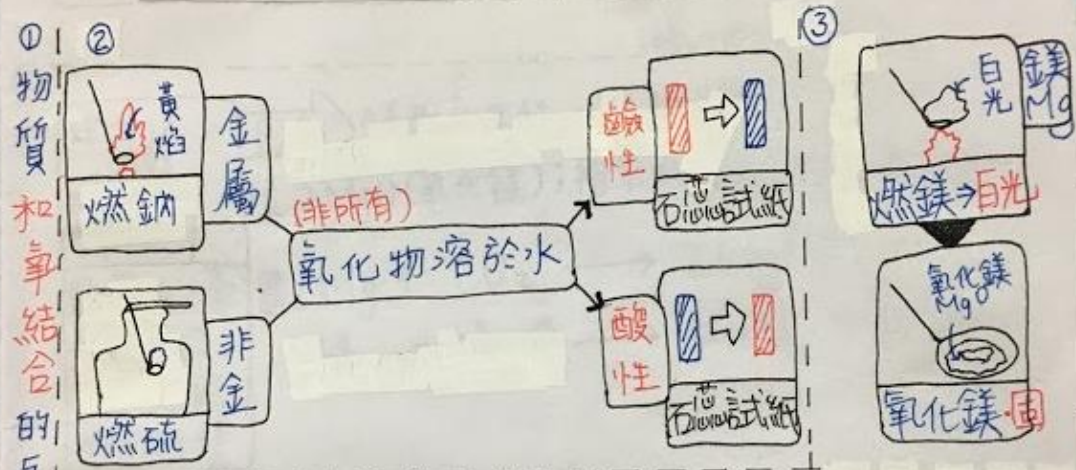 ①
物質和氧結合的
②
黃焰
燃鈉
金屬
燃硫
非金
(非所有)
氧化物溶於水
鹼性
石蕊試紙
酸性
石蕊試紙
③
白光
鎂
Mg
燃鎂⇒白光
氧化鎂
MgO
氧化鎂·固